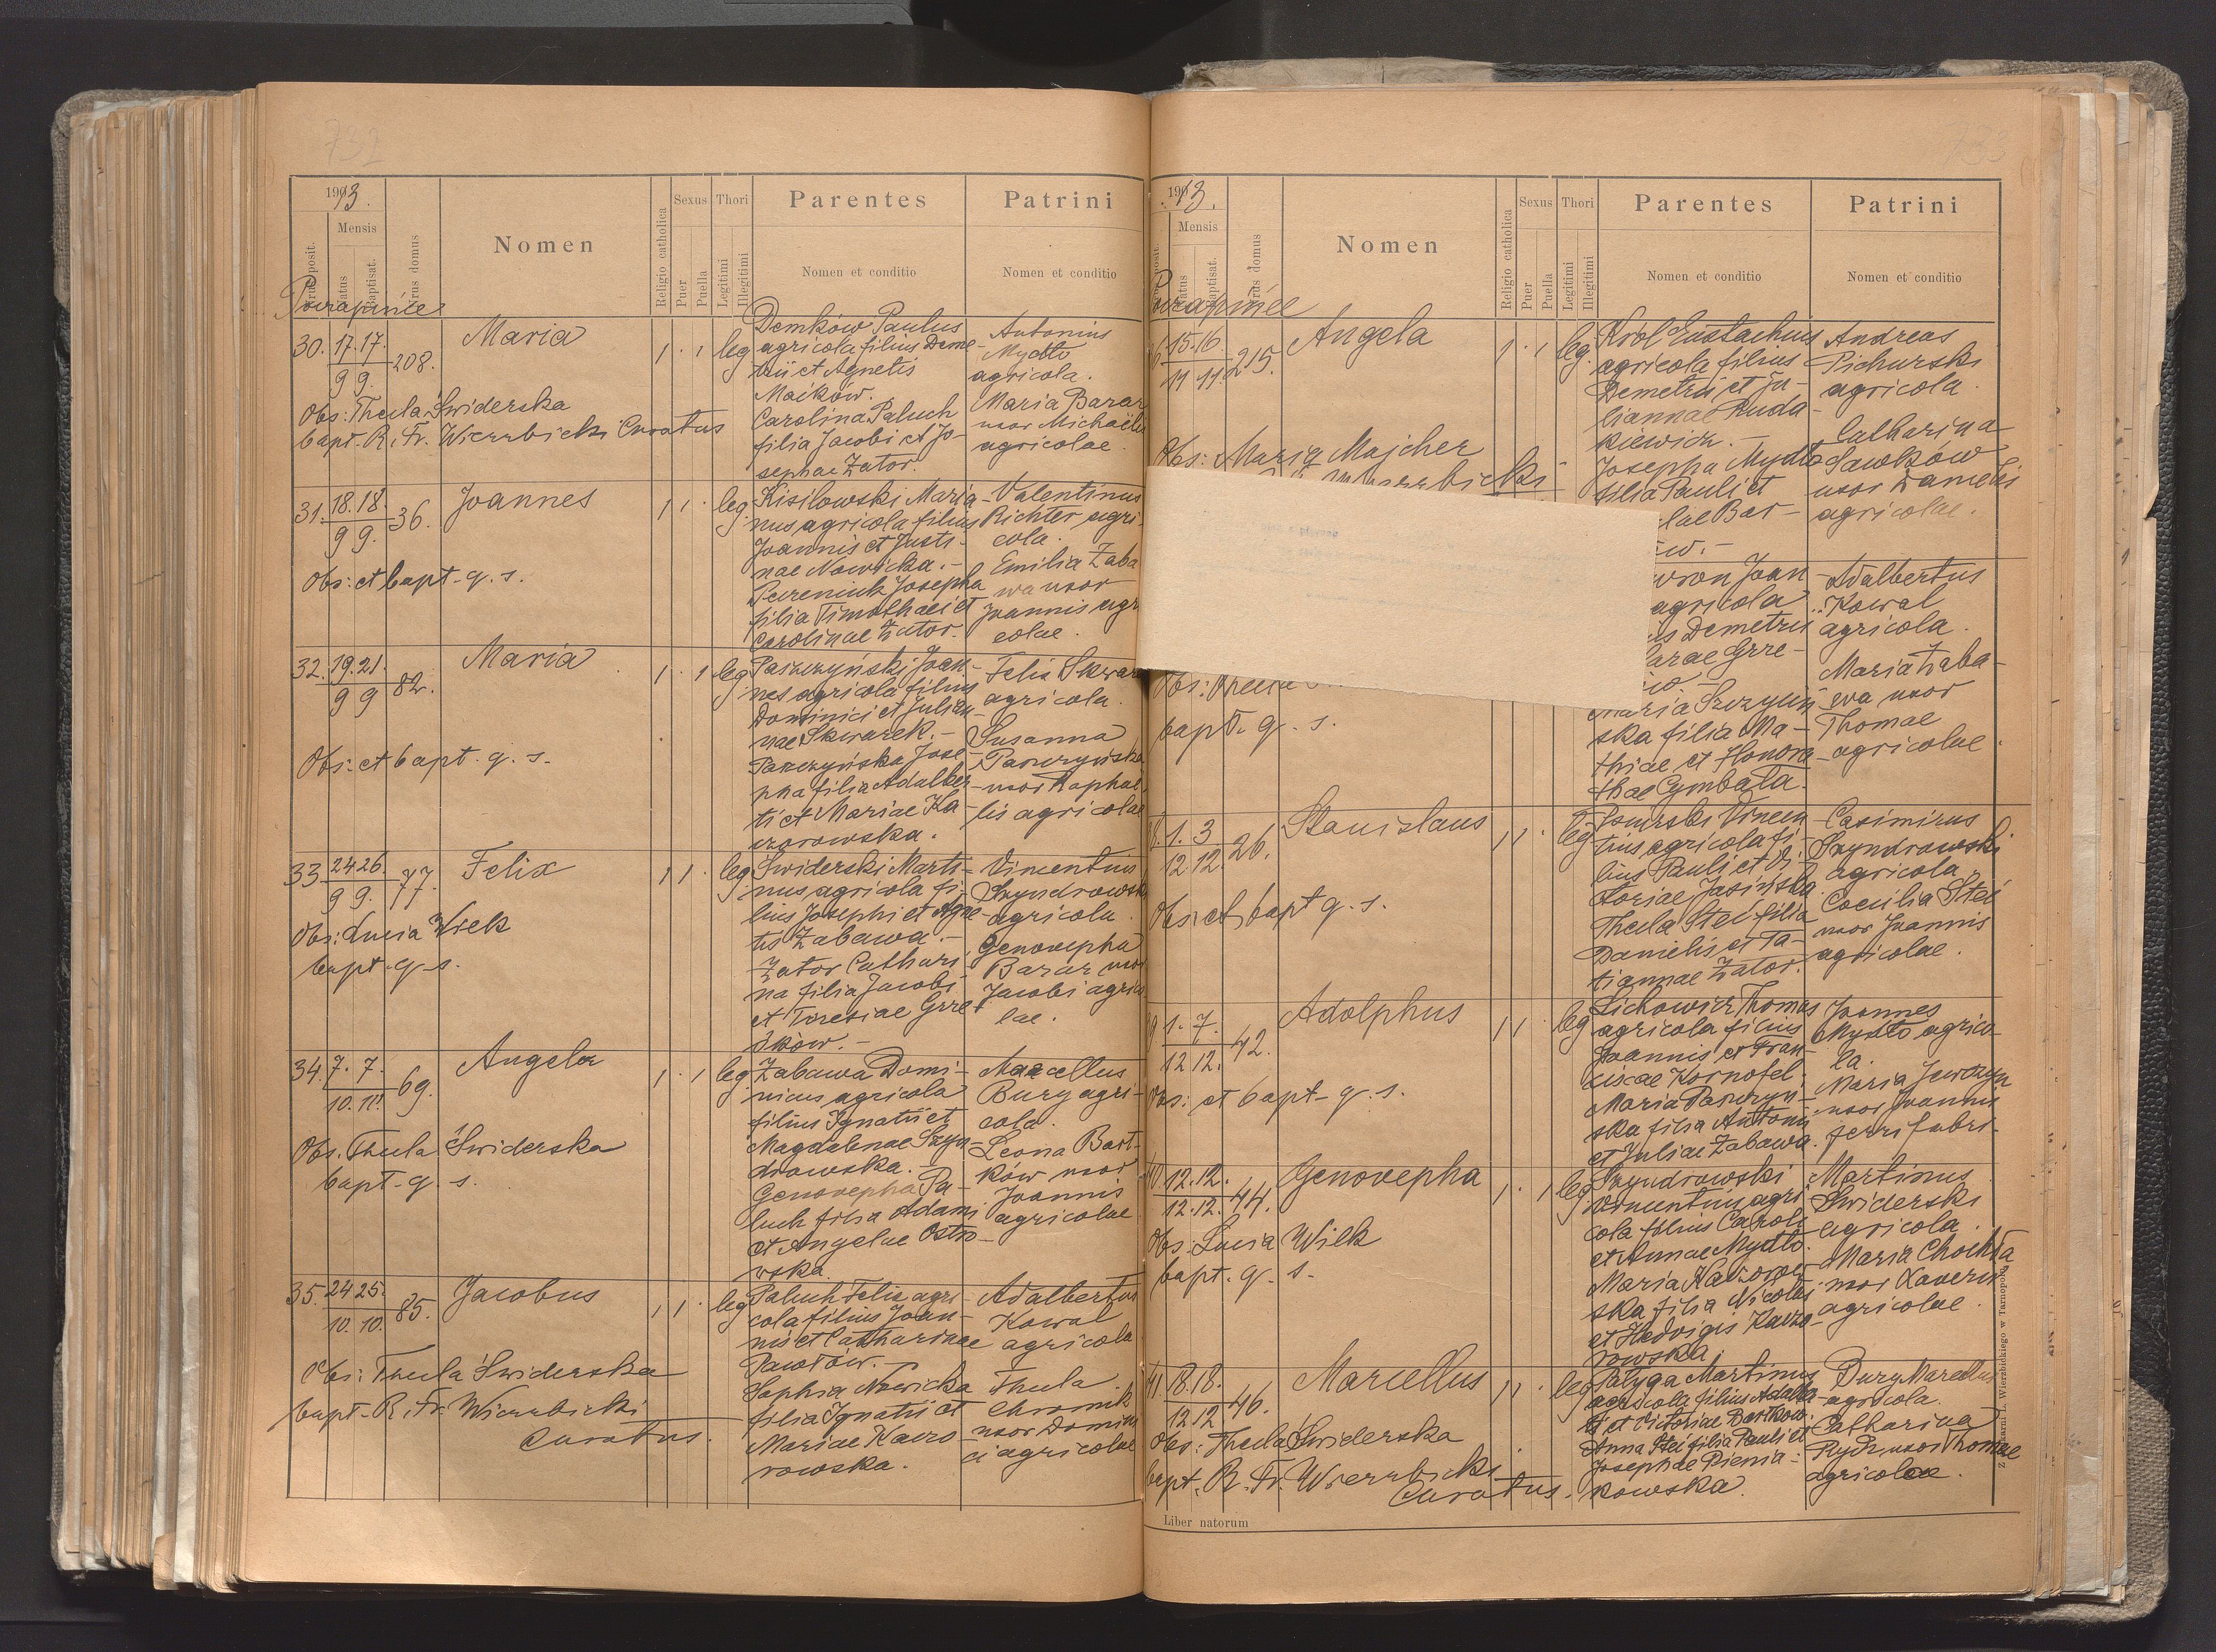 732
1913.
Mensis
Nrus posit.
Natus
Baptisat.
Nrus domus
Nomen
Religio catholica
Sexus
Puer
Puella
Thori
Legitimi
Illegitimi
Parentes
Nomen et conditio
Patrini
Nomen et conditio
30. 17. 17. 208.
9 9.
Maria
1 . 1 leg
Obs: Thecla Świderska
bapt. R. Fr. Wierzbicki Curatus
Demków Paulus
agricola filius Deme-
trii et Agnetis
Maików.
Carolina Paluch
filia Jacobi et Jo-
sephae Zator.
Antonius
Mydło
agricola.
Maria Barar
uxor Michaëlis
agricolae.
31. 18. 18. 36.
9 9.
Joannes
1 1 . leg.
Obs: et bapt. q. s.
Kisilowski Maria-
nus agricola filius
Joannis et Justi-
nae Nowicka. -
Josepha
filia Timothaei et
Carolinae Zator.
Valentinus
Richter agri-
cola.
Emilia Zaba
wa uxor
Joannis agri
colae.
32. 19. 21. 82.
9 9
Maria
1 . 1 leg
Obs: et bapt. q. s.
Paszczyński Joan-
nes agricola filius
Dominici et Julian-
nae Skwarek. -
Paszczyńska Jose-
pha filia Adalber-
ti et Mariae Ka-
czorowska.
Felix Skwar
agricola.
Susanna
Paszczyńska
uxor Raphae
lis agricolae
33. 24 26. 77.
9 9.
Felix
1 1 . leg
Obs: Lucia Wilk
bapt. q. s.
Świderski Marti-
nus agricola fi-
lius Josephi et Agne-
tis Zabawa. -
Zator Cathari-
na filia Jacobi
et Teresiae Grze-
śków. -
Vincentius
Szyndrowski
agricola.
Genovepha
Barar uxor
Jacobi agrico
lae.
34. 7. 7. 69.
10. 10.
Angela
1 . 1 leg
Obs. Thecla Świderska
bapt. q. s.
Zabawa Domi-
nicus agricola
filius Ignatii et
Magdalenae Szyn-
drowska.
Genovepha Pa-
luch filia Adami
et Angelae Ostro-
wska.
Marcellus
Bury agri-
cola.
Leona Bart-
ków uxor
Joannis
agricolae
35. 24 25. 85.
10. 10.
Jacobus
1 1 . leg
Obs: Thecla Świderska
bapt. R. Fr. Wierzbicki
Curatus.
Paluch Felix agri-
cola filius Joan-
nis et Catharinae
Pawłów. -
Sophia Nowicka
filia Ignatii et
Mariae Kaczo-
rowska.
Adalbertus
Kowal
agricola
Thecla
Chromik
uxor Domini
ci agricolae
1913.
Mensis
Natus
Baptisat.
Nrus domus
Nomen
Religio catholica
Sexus
Puer
Puella
Thori
Legitimi
Illegitimi
Parentes
Nomen et conditio
Patrini
Nomen et conditio
15. 16. 215.
11 11.
Angela
1 . 1 leg.
Obs: Maria Majcher
Król Eustachius
agricola filius
Demetrii et Ju-
liannae Ruda-
kiewicz. -
Josepha Mydło
filia Pauli et
lae Bar-
ów. -
Andreas
Pichurski
agricola.
Catharina
Sawków
uxor Danielis
agricolae.
bapt. q. s.
Joan
agricola
us Demetrii
arae Grze-
Maria Szczyń-
ska filia Ma-
thiae et Honora-
thae Cymbała.
Adalbertus
Kowal
agricola.
Maria Zaba-
wa uxor
Thomae
agricolae.
1. 3 26.
12 12.
Stanislaus
1 1 . leg
Obs: et bapt q. s.
Vincen-
tius agricola fi-
lius Pauli et Vi-
ctoriae Jasińska.
Thecla Steć filia
Danielis et Ta-
tiannae Zator.
Casimirus
Szyndrowski
agricola.
Coecilia Steć
uxor Joannis
agricolae.
1. 7. 42.
12 12.
Adolphus
1 1 . leg
Obs: et bapt. q. s.
Lichowicz Thomas
agricola filius
Joannis et Fran-
ciscae Kornofel.
Maria Paszczyń-
ska filia Antonii
et Juliae Zabawa.
Joannes
Mydło agrico-
la.
Maria
uxor Joannis
ferri fabri.
12. 12. 44.
12. 12.
Genovepha
1 . 1 leg
Obs: Lucia Wilk
bapt. q. s.
Szyndrowski
Vincentius agri-
cola filius Caroli
et Annae Mydło.
Maria Kaczorow-
ska filia Nicolai
et Hedvigis Kaczo-
rowska.
Martinus
Świderski
agricola.
Maria Chochla
uxor Xaverii
agricolae.
41 18. 18. 46.
12 12.
Marcellus
1 1 . leg
Obs: Thecla Świderska
bapt. R. Fr. Wierzbicki
Curatus.
Pałyga Martinus
agricola filius Adalber-
ti et Victoriae Bartków.
Anna Steć filia Pauli et
Josephae Pienia-
kowska.
Bury Marcellus
agricola.
Catharina
Rydz uxor Thomae
agricolae.
Liber natorum
Z drukarni L. Wierzbickiego w Tarnopolu